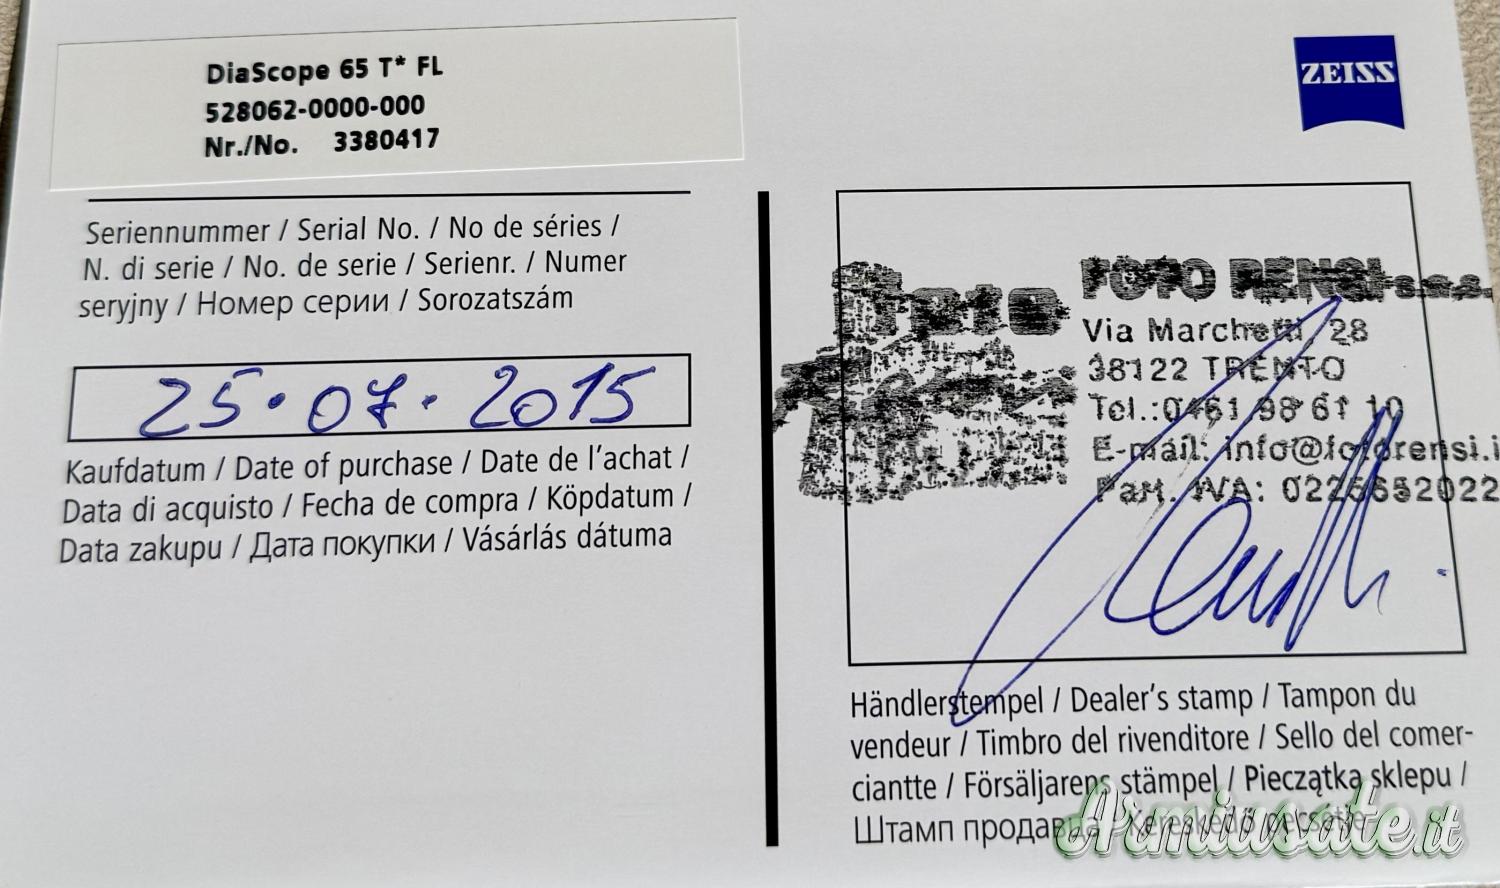 DiaScope 65 T* FL
528062-0000-000
Nr./No. 3380417
ZEISS
Seriennummer / Serial No. / No de séries /
N. di serie / No. de serie / Serienr. / Numer
seryjny / Номер серии / Sorozatszám
25.07.2015
Kaufdatum / Date of purchase / Date de l'achat /
Data di acquisto / Fecha de compra / Köpdatum /
Data zakupu / Дата покупки / Vásárlás dátuma
FOTO RENSI s.n.c.
Via Marchetti, 28
38122 TRENTO
Tel.: 0461 98 61 10
E-mail: info@fotorensi.i
Part. IVA: 022
Händlerstempel / Dealer's stamp / Tampon du
vendeur / Timbro del rivenditore / Sello del comer-
ciantte / Försäljarens stämpel / Pieczątka sklepu /
Штамп продавца / Kereskedő pecsétje
Armiusate.it